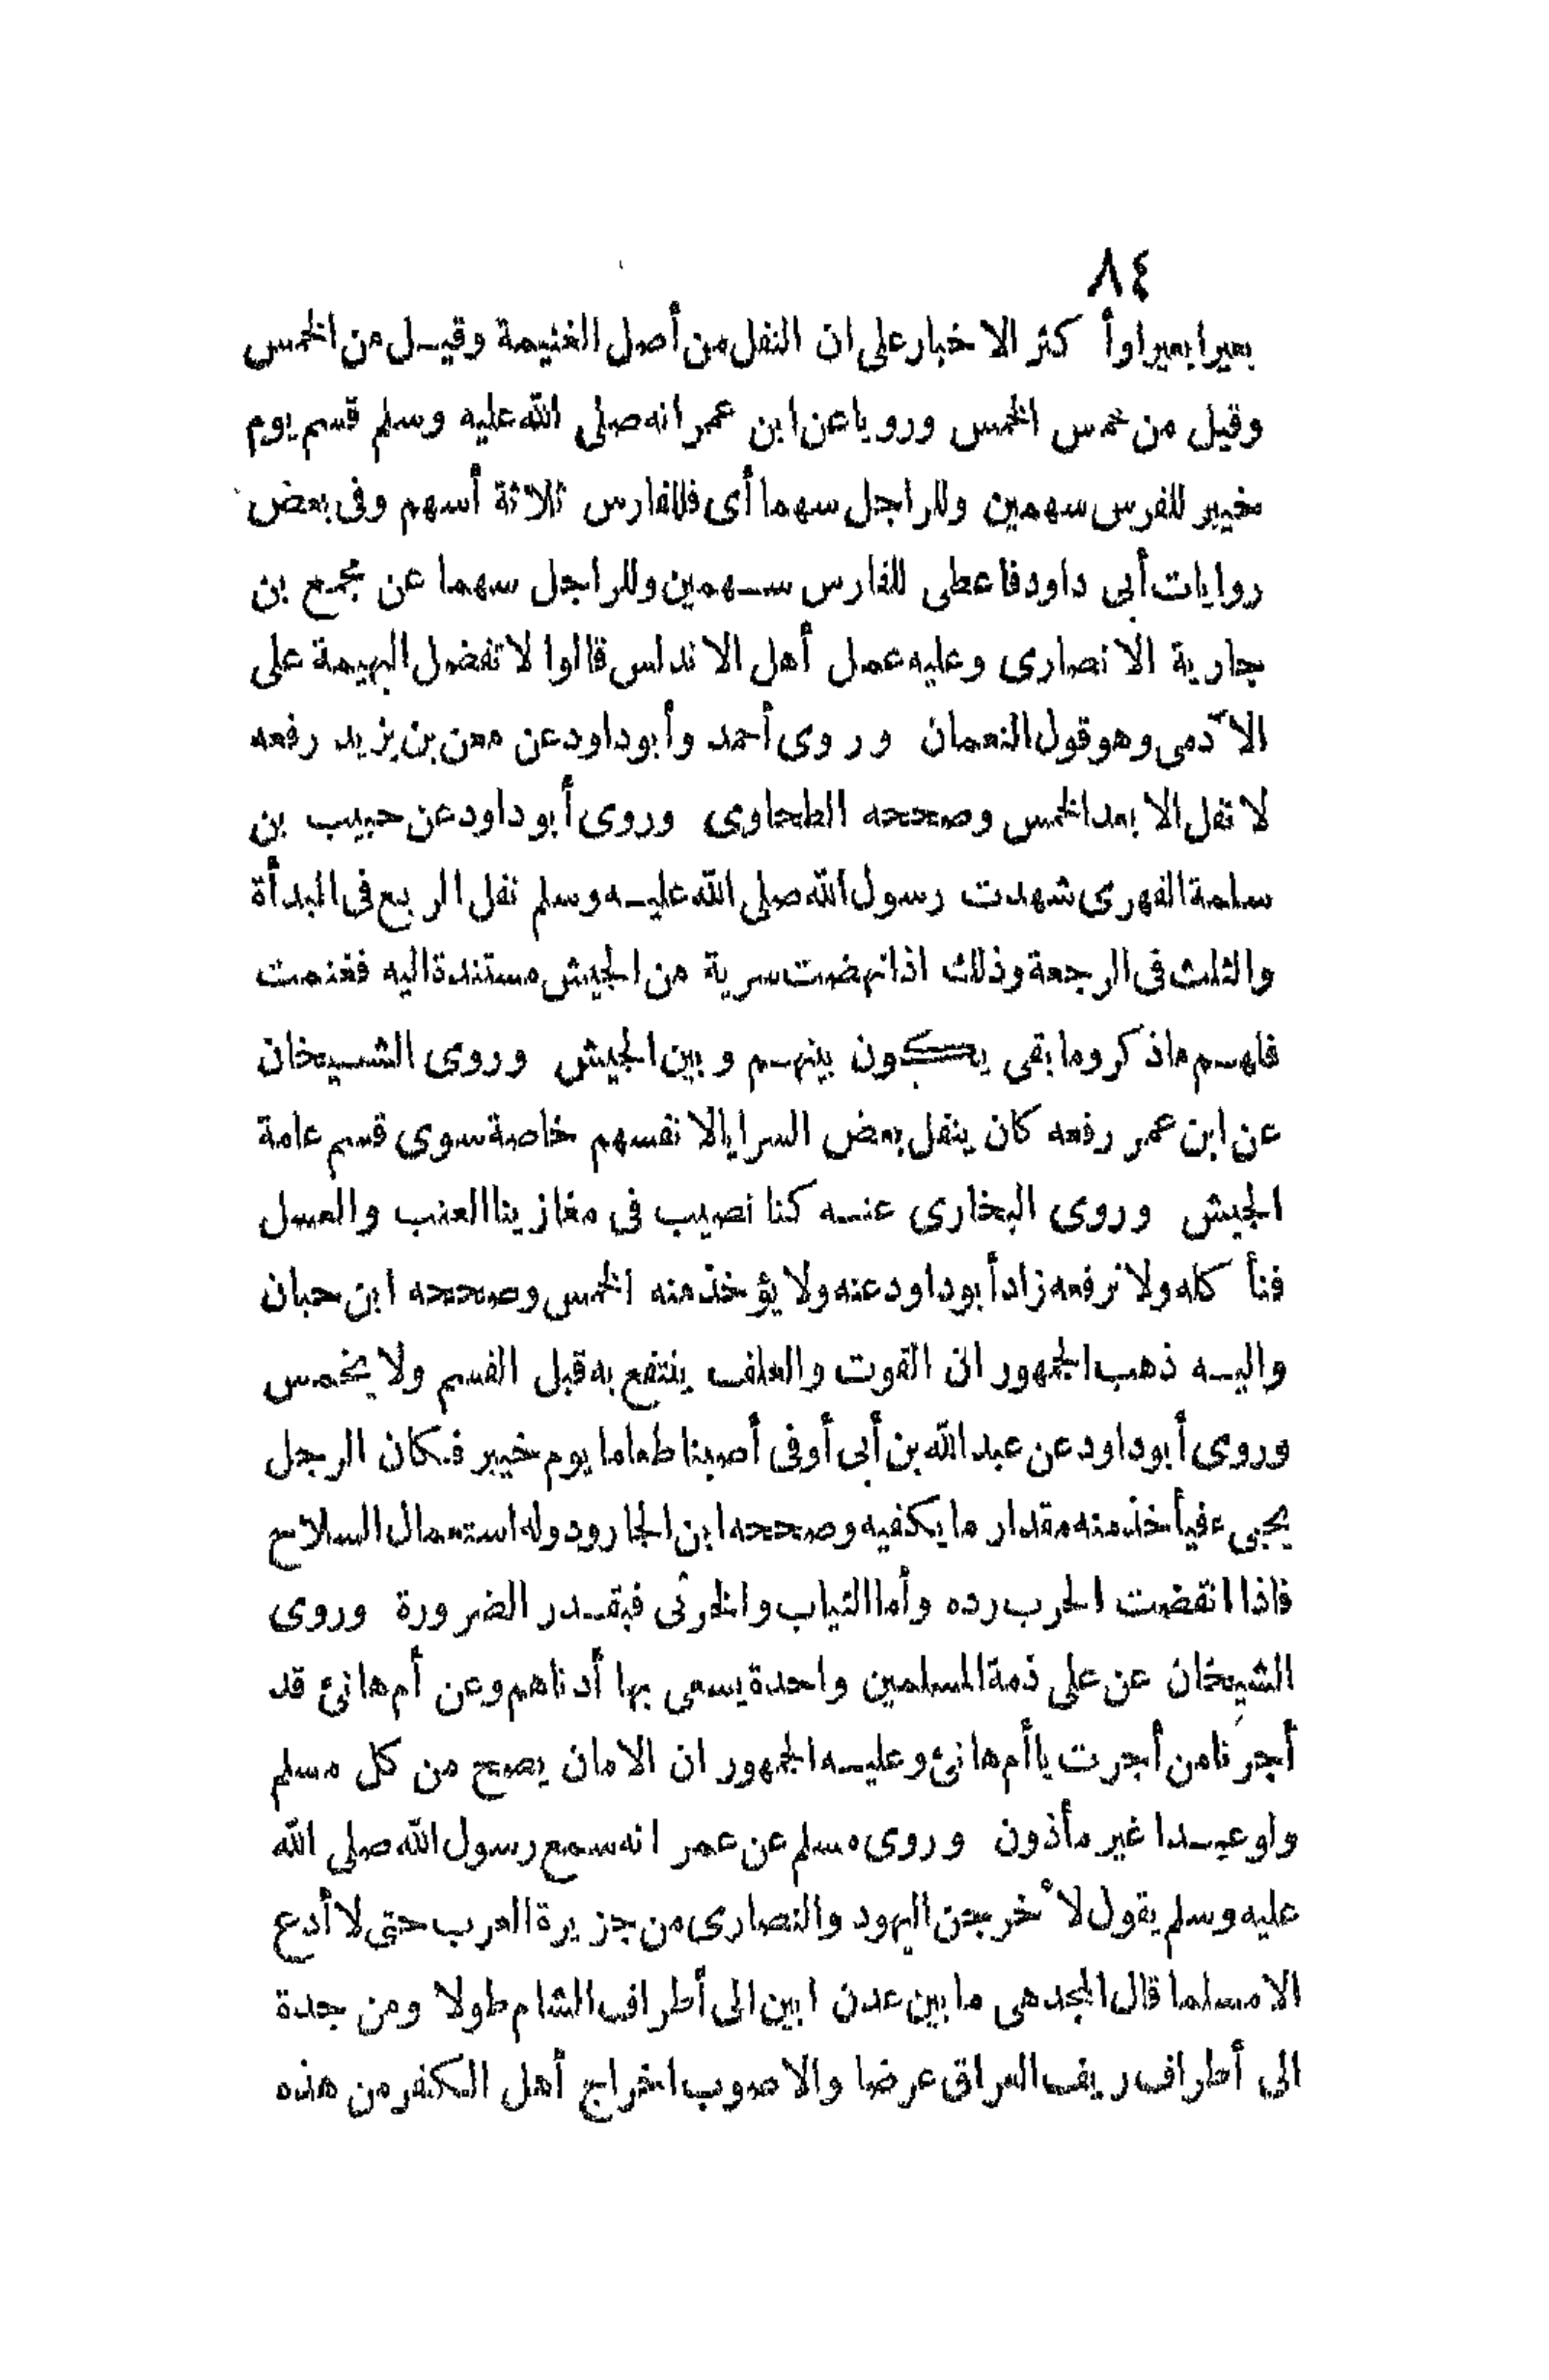 ٨٤
بعيرا بعيرا وأكثر الاخبار على ان النفل من أصل الغنيمة وقيل من الخمس
وقيل من خمس الخمس ورويا عن ابن عمر انه صلى الله عليه وسلم قسم يوم
خيبر للفرس سهمين وللراجل سهما أى فللفارس ثلاثة أسهم وفى بعض
روايات أبى داود فاعطى للفارس سهمين وللراجل سهما عن مجمع بن
جارية الانصارى وعليه عمل أهل الاندلس قالوا لا تفضل البهيمة على
الآدمى وهو قول النعمان وروى أحمد وأبو داود عن معن بن يزيد رفعه
لا نفل الا بعد الخمس وصححه الطحاوى وروى أبو داود عن حبيب بن
سلمة الفهرى شهدت رسول الله صلى الله عليه وسلم نفل الربع فى البدأة
والثلث فى الرجعة وذلك اذا نهضت سرية من الجيش مستندة اليه فغنمت
فلهم ما ذكر وما بقى يكون بينهم وبين الجيش وروى الشيخان
عن ابن عمر رفعه كان ينفل بعض السرايا لانفسهم خاصة سوى قسم عامة
الجيش وروى البخارى عنه كنا نصيب فى مغازينا العنب والعسل
فنأكله ولا نرفعه زاد أبو داود عنه ولا يؤخذ منه الخمس وصححه ابن حبان
واليه ذهب الجمهور ان القوت والعلف ينتفع به قبل القسم ولا يخمس
وروى أبو داود عن عبد الله بن أبى أوفى أصبنا طعاما يوم خيبر فكان الرجل
يجىء فيأخذ منه مقدار ما يكفيه وصححه ابن الجارود وله استعمال السلاح
فاذا انقضت الحرب رده وأما الثياب والخرثى فبقدر الضرورة وروى
الشيخان عن على ذمة المسلمين واحدة يسعى بها أدناهم وعن أم هانئ قد
أجرنا من أجرت يا أم هانئ وعليه الجمهور ان الامان يصح من كل مسلم
ولو عبدا غير مأذون وروى مسلم عن عمر انه سمع رسول الله صلى الله
عليه وسلم يقول لأخرجن اليهود والنصارى من جزيرة العرب حتى لا أدع
الا مسلما قال المجد هى ما بين عدن ابين الى أطراف الشام طولا ومن جدة
الى أطراف ريف العراق عرضا والاصوب اخراج أهل الكفر من هذه